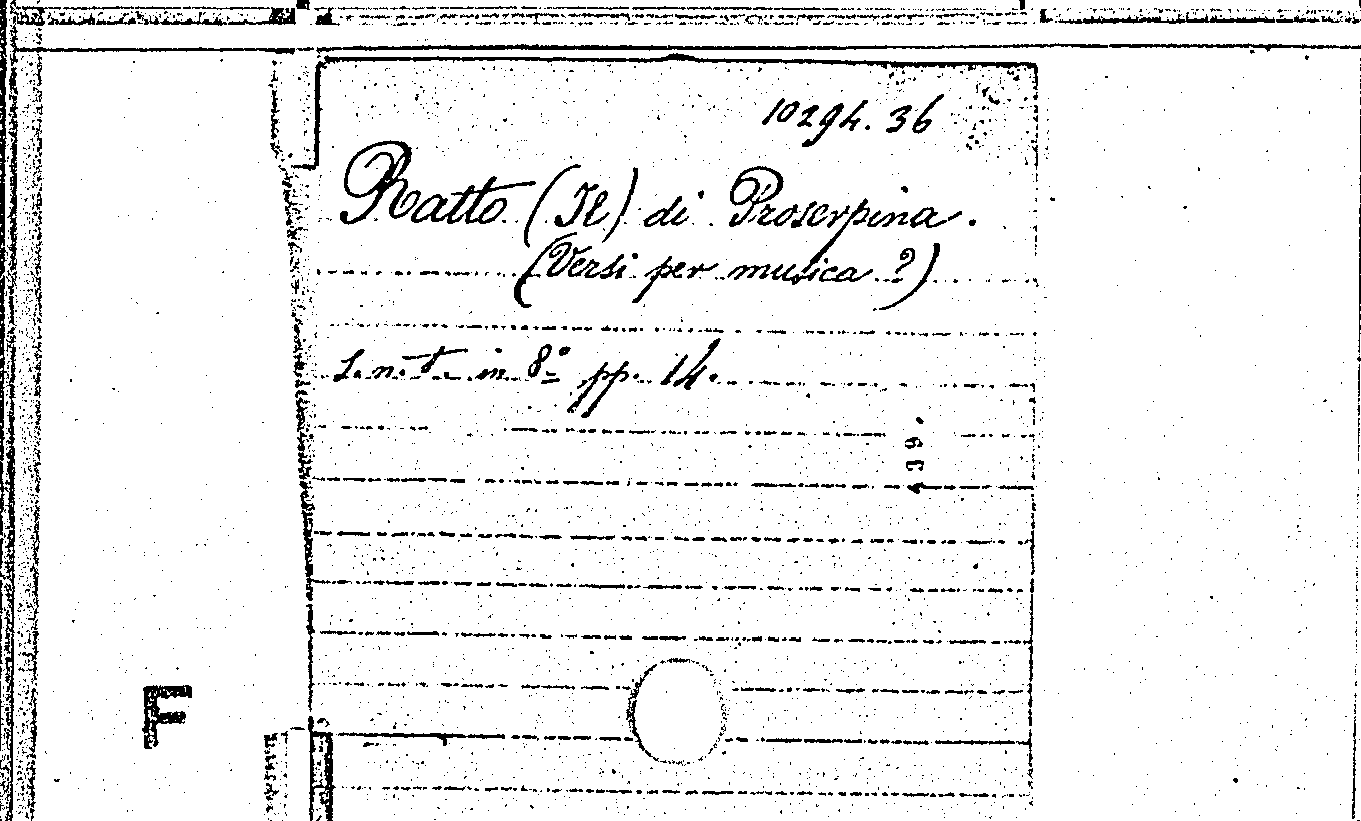 10294. 36
Ratto (Il) di Proserpina.
(Versi per musica ?)
s. n. t. in 8º pp. 14.
139.
F